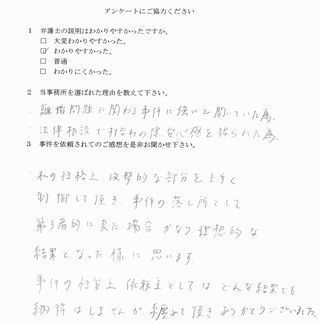 アンケートにご協力ください
1 弁護士の説明はわかりやすかったですか。
□ 大変わかりやすかった。
☑ わかりやすかった。
□ 普通
□ わかりにくかった。
2 当事務所を選ばれた理由を教えて下さい。
・離婚問題に関わる事件に強いと聞いていた為。
・法律相談で打合わの際安心感を得られた為。
3 事件を依頼されてのご感想を是非お聞かせ下さい。
・私の性格上、攻撃的な部分を上手く
制御して頂き、事件の落し所として
第3者的に見た場合かなり理想的な
結果となった様に思います。
事件の性質上 依頼主としては どんな結果でも
納得はしませんが、纏めて頂き ありがとうございました